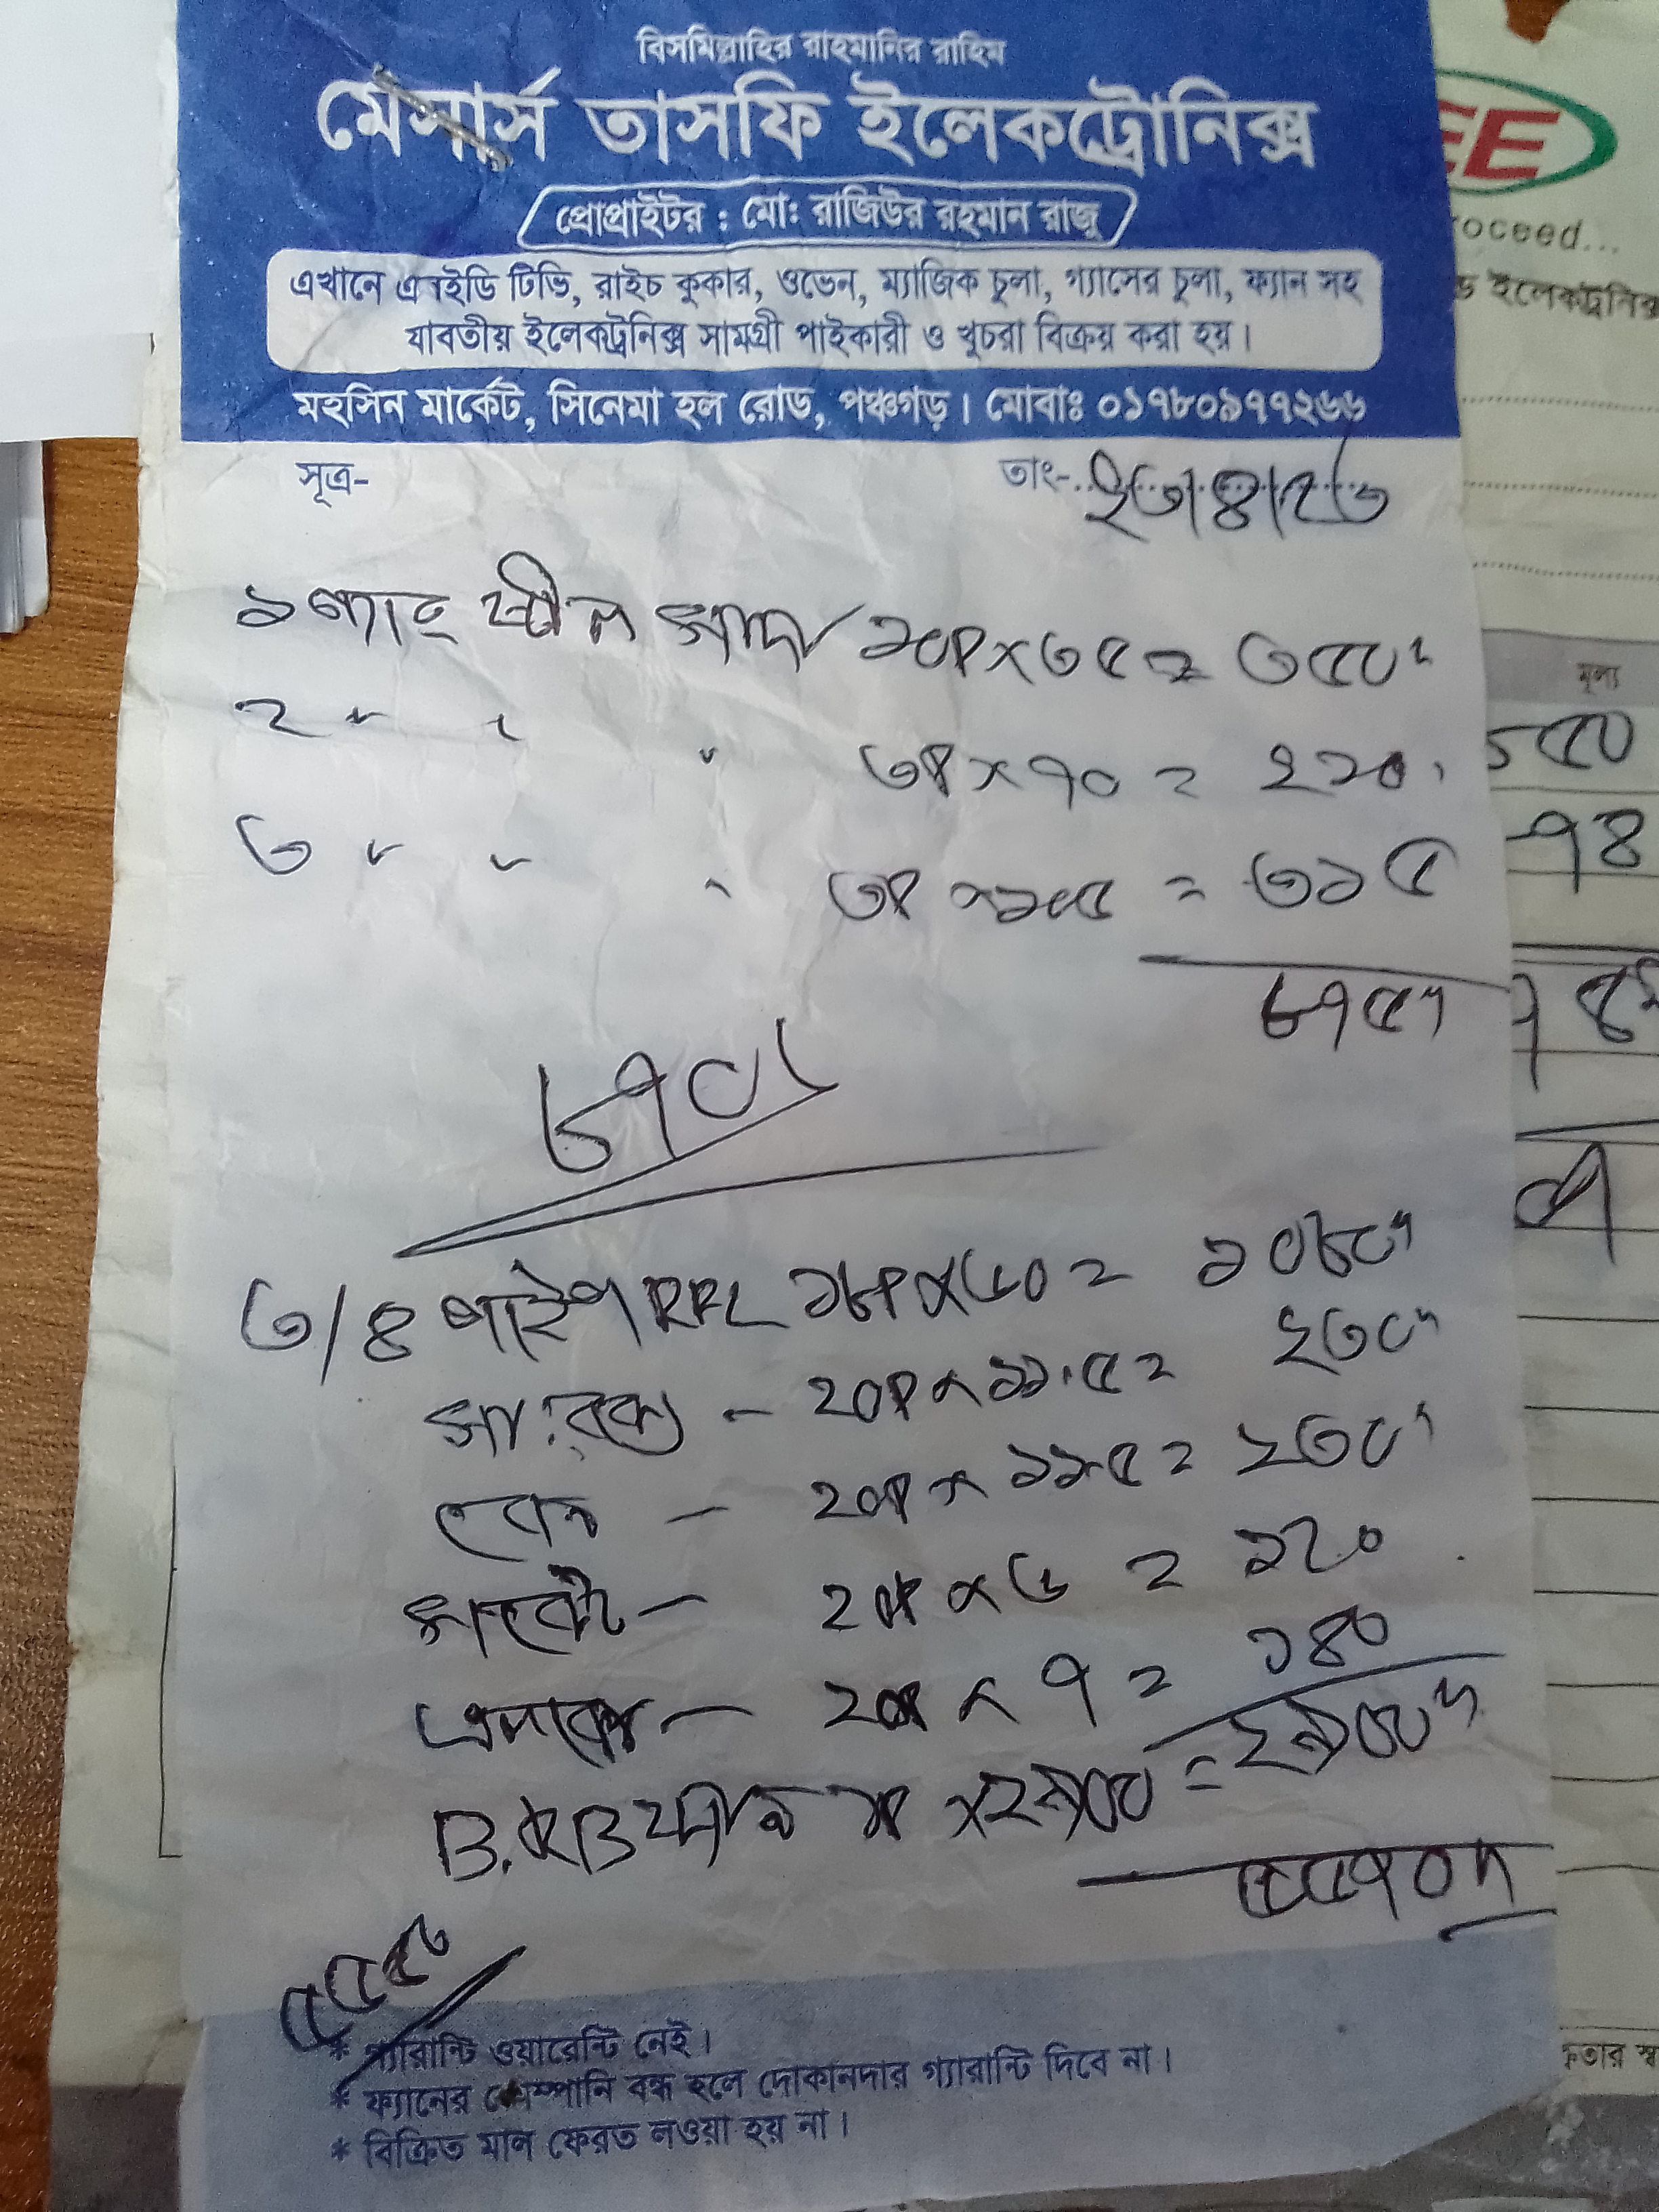 বিসমিল্লাহির রাহমানির রাহিম
মেসার্স তাসফি ইলেকট্রোনিক্স
প্রোপ্রাইটর : মোঃ রাজিউর রহমান রাজু
এখানে এলইডি টিভি, রাইচ কুকার, ওভেন, ম্যাজিক চুলা, গ্যাসের চুলা, ফ্যান সহ
যাবতীয় ইলেকট্রনিক্স সামগ্রী পাইকারী ও খুচরা বিক্রয় করা হয়।
মহসিন মার্কেট, সিনেমা হল রোড, পঞ্চগড়। মোবাঃ ০১৭৮০৯৭৭২৬৬
সূত্র-
তাং-
১ ১০P×৩৫=৩৫০
২ " " " ৩P×৭০=২১০
৩ " " " ৩P×১০৫=৩১৫
৮৭৫
৮৭০
৩/৪ পাইপ RFL ১৮P×৬০=১০৮০
২০P×১১.৫=২৩০
২০P×১১.৫=২৩০
সকেট - ২০P×৬=১২০
২০P×৭=১৪০
B.RB ফ্যান ১P×২৯০০=২৯০০
৫৫৭০
৫৫৫০
* গ্যারান্টি ওয়ারেন্টি নেই।
* ফ্যানের কোম্পানি বন্ধ হলে দোকানদার গ্যারান্টি দিবে না।
* বিক্রিত মাল ফেরত লওয়া হয় না।
EE
roceed...
ড ইলেকট্রনিক্স
মূল্য
৫৫০
৭৪